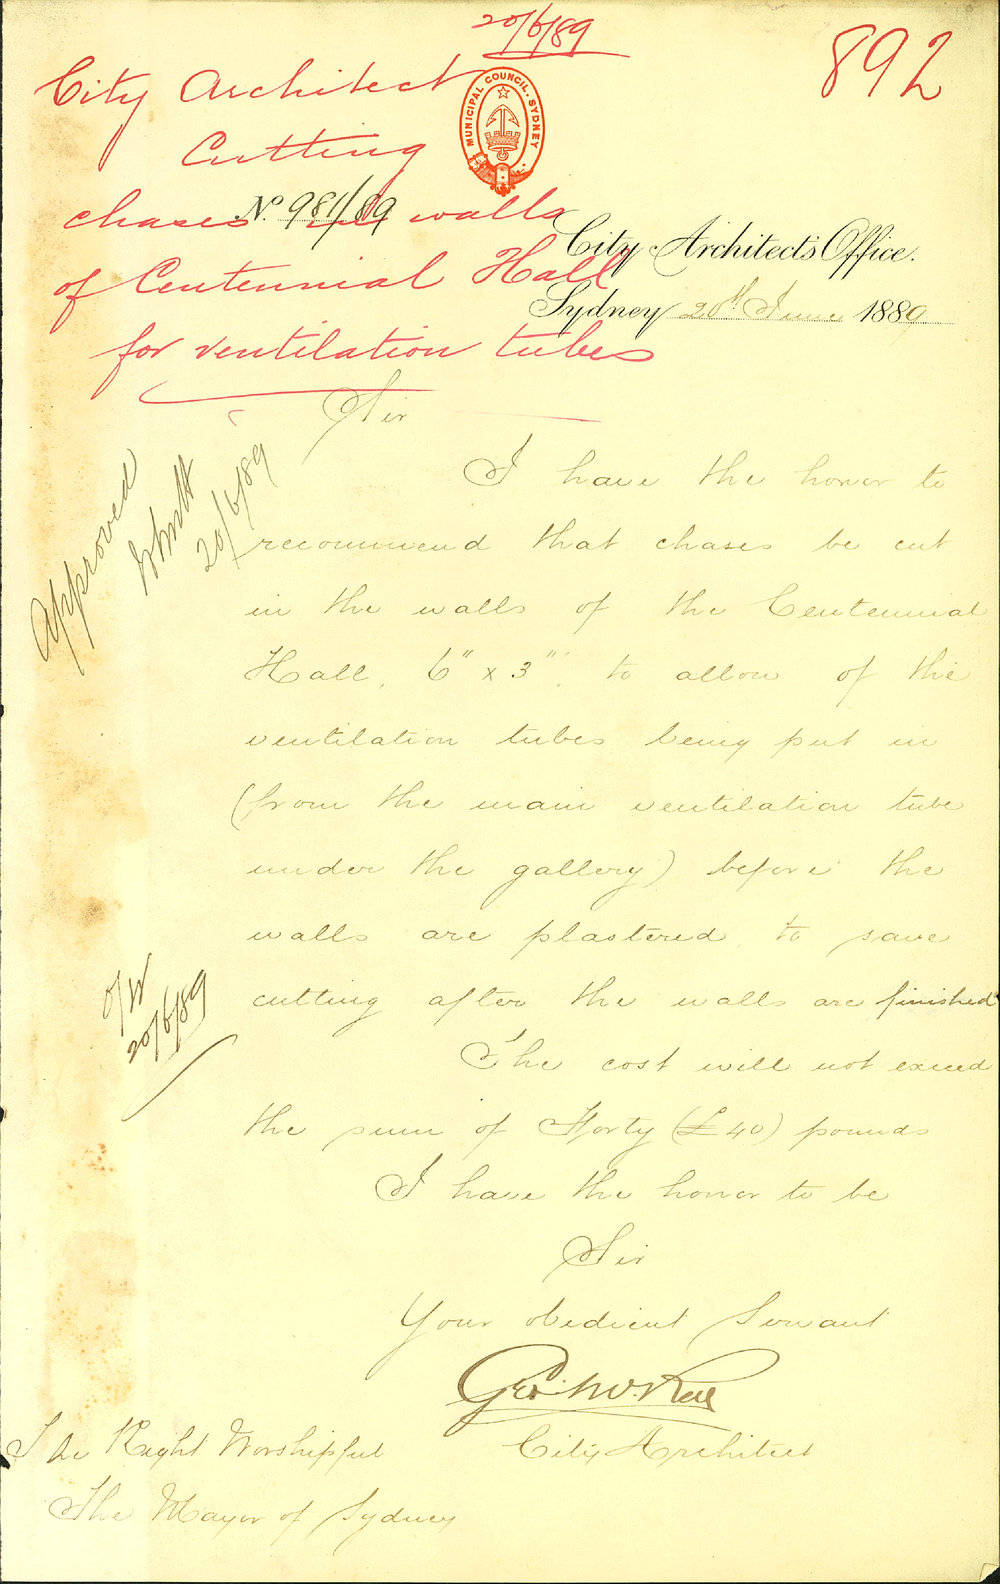 20/6/89
892
City Architect
Cutting
chases in walls
of Centennial Hall
for ventilation tubes
MUNICIPAL COUNCIL. SYDNEY
No. 981/89
City Architect's Office.
Sydney 20th June 1889
Sir
I have the honor to
recommend that chases be cut
in the walls of the Centennial
Hall, 6" x 3", to allow of the
ventilation tubes being put in
(from the main ventilation tube
under the gallery) before the
walls are plastered to save
cutting after the walls are finished
The cost will not exceed
the sum of Forty (£40) pounds
I have the honor to be
Sir
Your obedient Servant
City Architect
The Right Worshipful
The Mayor of Sydney
Approved
20/6/89
20/6/89